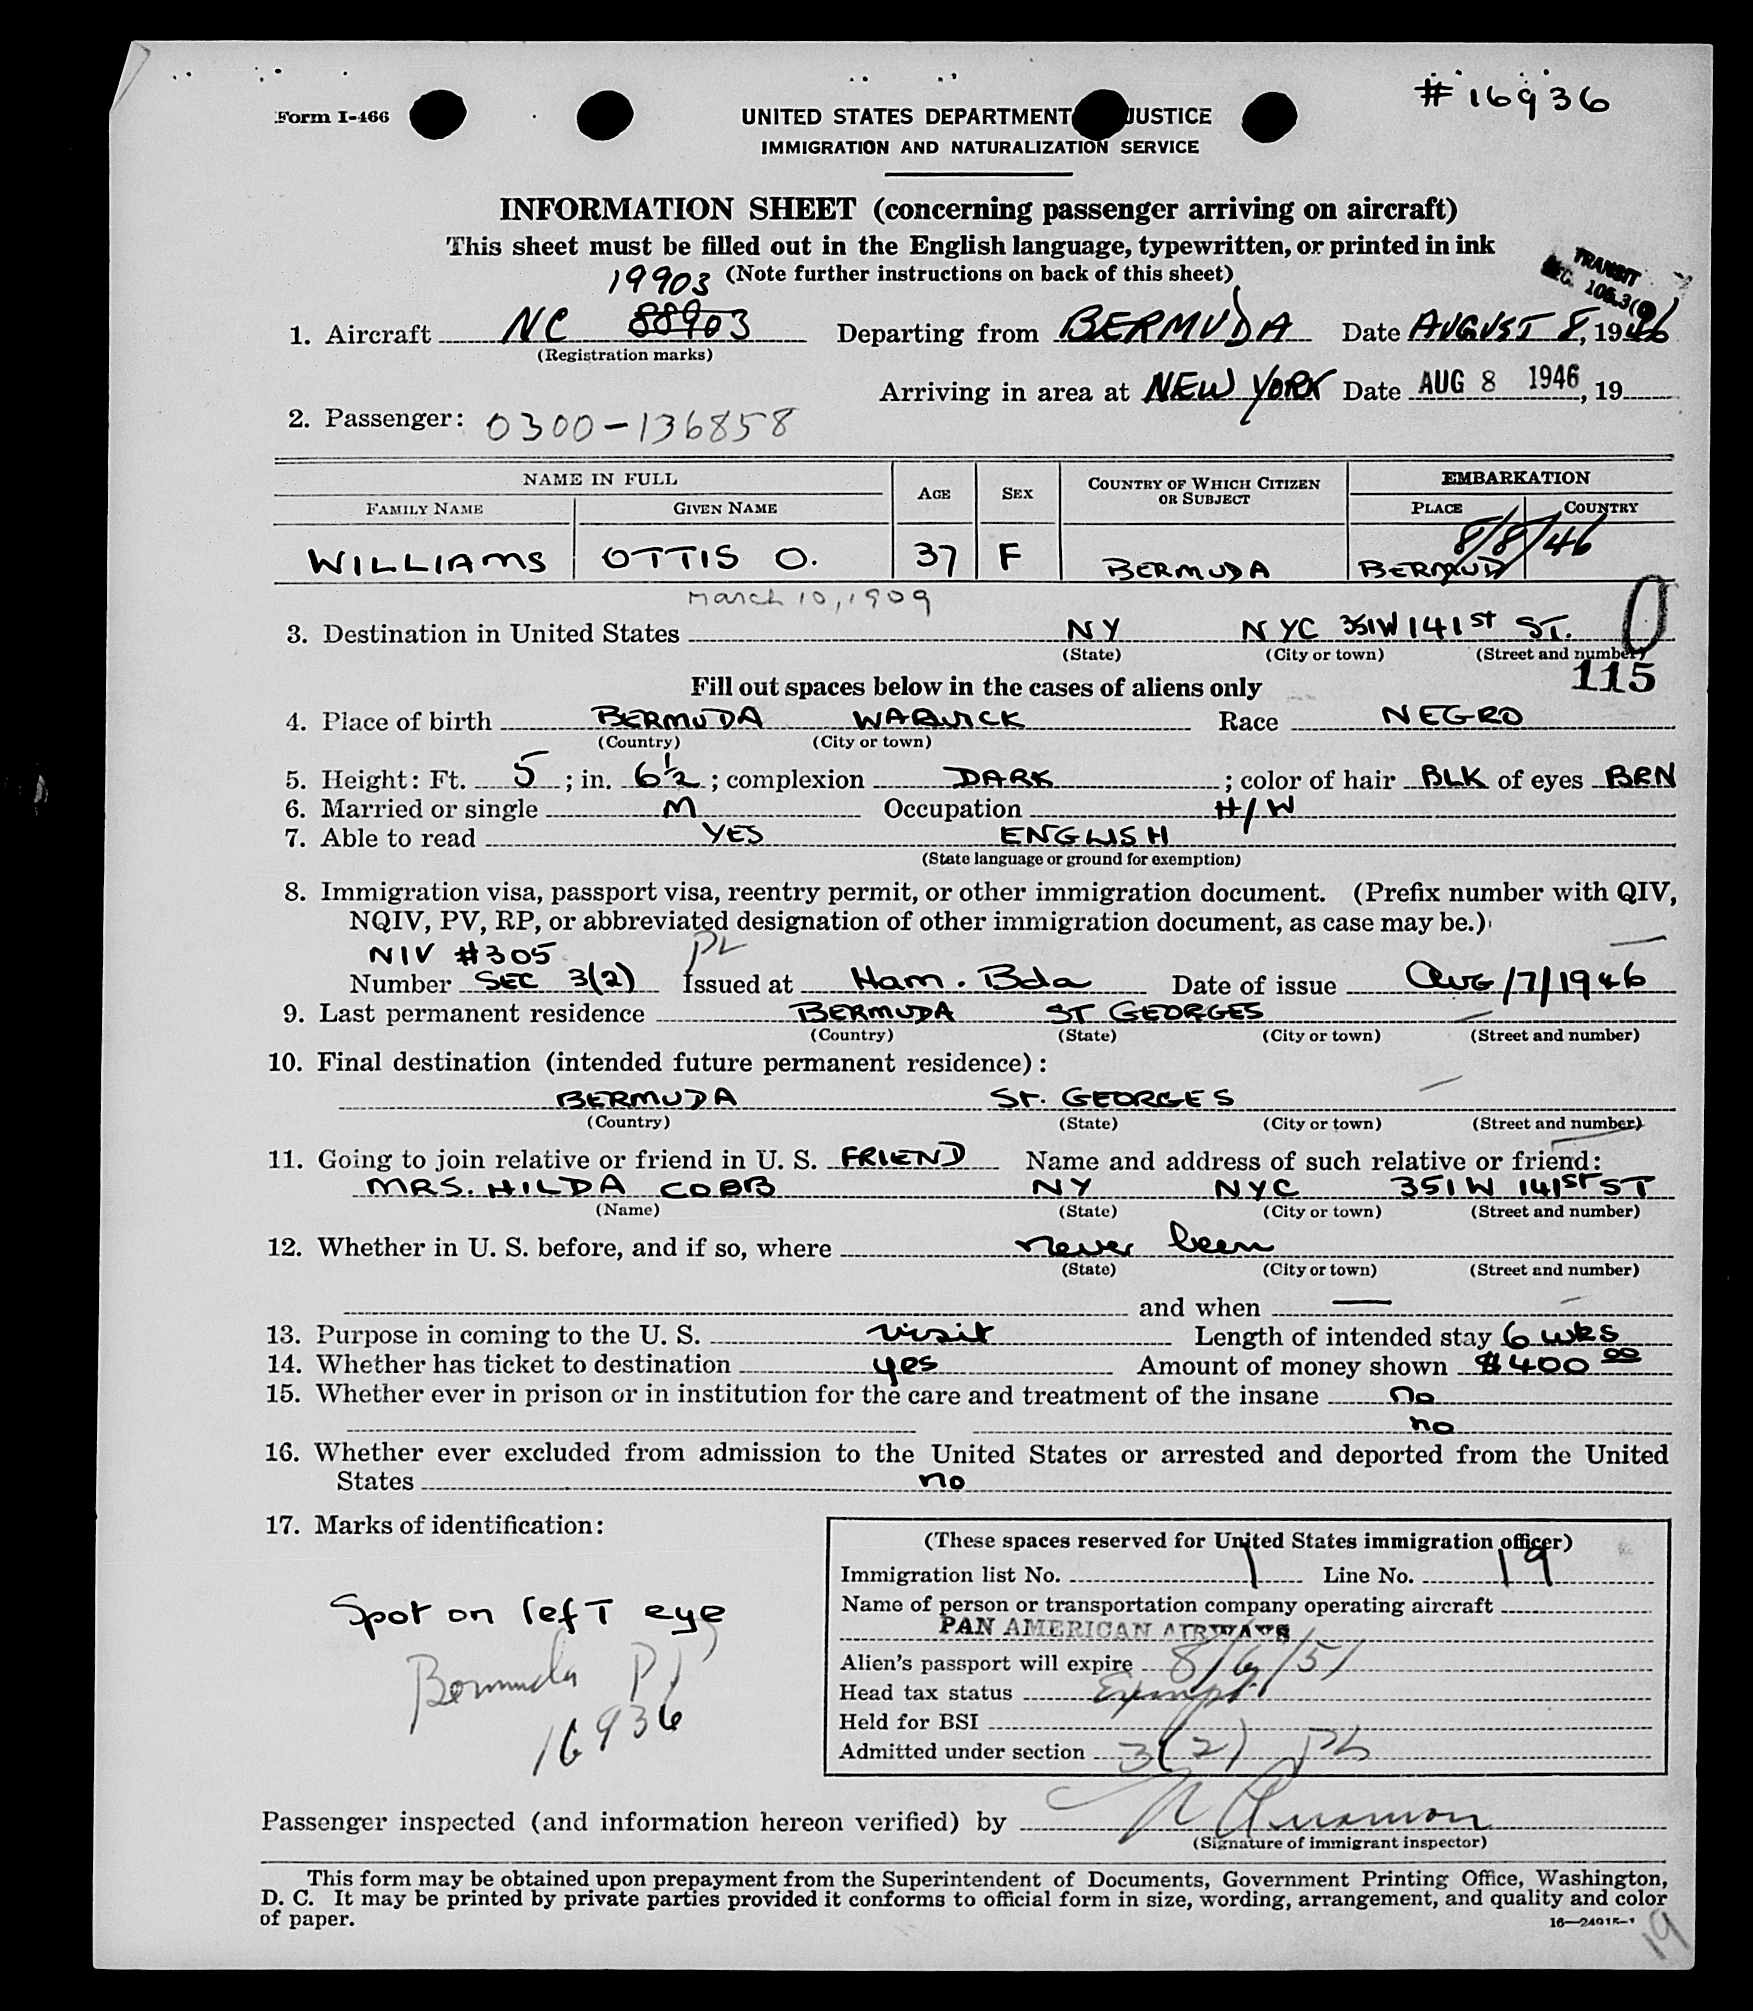 # 16936
Form I-466
UNITED STATES DEPARTMENT JUSTICE
IMMIGRATION AND NATURALIZATION SERVICE
INFORMATION SHEET (concerning passenger arriving on aircraft)
This sheet must be filled out in the English language, typewritten, or printed in ink
(Note further instructions on back of this sheet)
TRANSIT
19903
1. Aircraft NC 88903 Departing from BERMUDA Date AUGUST 8, 1946
(Registration marks)
Arriving in area at NEW YORK Date AUG 8 1946, 19
2. Passenger: 0300-136858
NAME IN FULL AGE SEX COUNTRY OF WHICH CITIZEN OR SUBJECT EMBARKATION
FAMILY NAME GIVEN NAME PLACE COUNTRY
8/8/46
WILLIAMS OTTIS O. 37 F BERMUDA BERMUD
March 10, 1909
3. Destination in United States NY NYC 351W 141st ST.
(State) (City or town) (Street and number)
115
Fill out spaces below in the cases of aliens only
4. Place of birth BERMUDA WARWICK Race NEGRO
(Country) (City or town)
5. Height: Ft. 5; in. 6½; complexion DARK; color of hair BLK of eyes BRN
6. Married or single M Occupation H/W
7. Able to read YES ENGLISH
(State language or ground for exemption)
8. Immigration visa, passport visa, reentry permit, or other immigration document. (Prefix number with QIV,
NQIV, PV, RP, or abbreviated designation of other immigration document, as case may be.)
NIV #305
Number SEC 3(2) Issued at Ham. Bda Date of issue Aug/7/1946
9. Last permanent residence BERMUDA ST GEORGES
(Country) (State) (City or town) (Street and number)
10. Final destination (intended future permanent residence):
BERMUDA St. GEORGES
(Country) (State) (City or town) (Street and number)
11. Going to join relative or friend in U. S. FRIEND Name and address of such relative or friend:
MRS. HILDA COBB NY NYC 351 W 141st ST
(Name) (State) (City or town) (Street and number)
12. Whether in U. S. before, and if so, where never been
(State) (City or town) (Street and number)
and when —
13. Purpose in coming to the U. S. visit Length of intended stay 6 wks
14. Whether has ticket to destination yes Amount of money shown $400 00
15. Whether ever in prison or in institution for the care and treatment of the insane no
no
16. Whether ever excluded from admission to the United States or arrested and deported from the United
States no
17. Marks of identification:
Spot on left eye
Bermuda PP
16936
(These spaces reserved for United States immigration officer)
Immigration list No. 1 Line No. 19
Name of person or transportation company operating aircraft
PAN AMERICAN AIRWAYS
Alien's passport will expire 8/6/51
Head tax status Exempt
Held for BSI
Admitted under section 3(2) PL
Passenger inspected (and information hereon verified) by
(Signature of immigrant inspector)
This form may be obtained upon prepayment from the Superintendent of Documents, Government Printing Office, Washington,
D. C. It may be printed by private parties provided it conforms to official form in size, wording, arrangement, and quality and color
of paper.
19